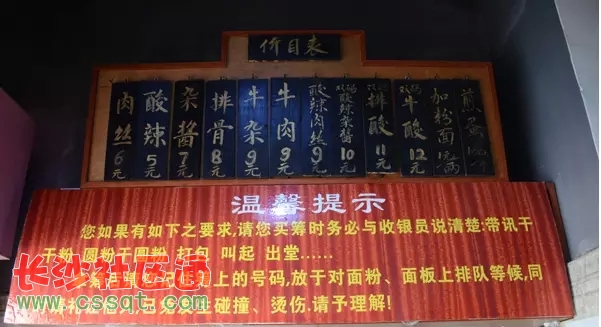 价目表
肉丝 6元
酸辣 5元
杂酱 7元
排骨 8元
牛杂 9元
牛肉 9元
酸辣肉丝 9元
双码 酸辣杂酱 10元
双码 排酸 11元
双码 牛酸 12元
加粉面
煎蛋
温馨提示
您如果有如下之要求,请您买筹时务必与收银员说清楚:带讯干
干粉 圆粉干圆粉 打包 叫起 出堂......
上的号码,放于对面粉、面板上排队等候,同
碰撞、烫伤.请予理解!
长沙社区通
www.cssqt.com